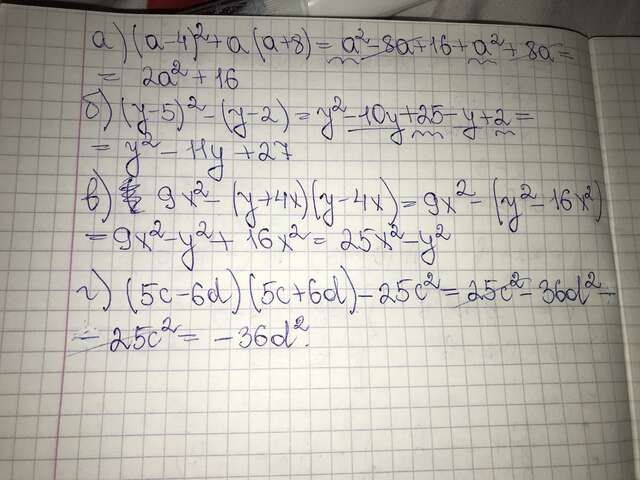 а) (a-4)²+a(a+8)=a²-8a+16+a²+8a=
= 2a²+16
б) (y-5)²-(y-2)=y²-10y+25-y+2=
= y²-11y+27
в) 9x²-(y+4x)(y-4x)=9x²-(y²-16x²)
=9x²-y²+16x²=25x²-y²
г) (5c-6d)(5c+6d)-25c²=25c²-36d²-
-25c²=-36d².